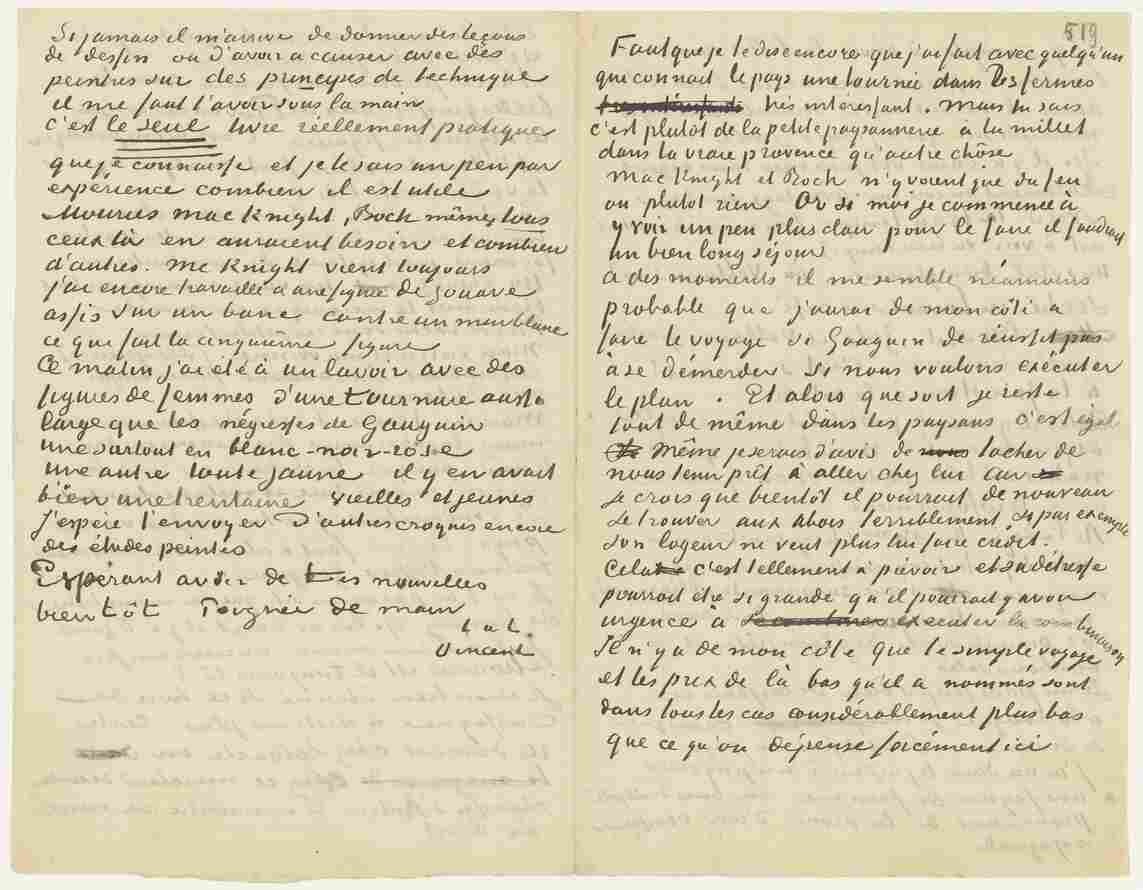 Si jamais il m'arrive de donner des leçons
de dessin ou d'avoir a causer avec des
peintres sur des principes de technique
il me faut l'avoir sous la main
c'est le seul livre réellement pratique
que je connaisse et je sais un peu par
expérience combien il est utile
Mouriès Mac Knight, Boch même, tous
ceux là en auraient besoin et combien
d'autres. Mc Knight vient toujours
j'ai encore travaillé a une figure de zouave
assis sur un banc contre un mur blanc
ce qui fait la cinquième figure
Ce matin j'ai été à un lavoir avec des
figures de femmes d'une tournure aussi
large que les négresses de Gauguin
une surtout en blanc-noir-rose
une autre toute jaune il y en avait
bien une trentaine vieilles et jeunes
J'espère t'envoyer d'autres croquis encore
des études peintes
Espérant avoir de tes nouvelles
bientôt Poignée de main
t. à t.
Vincent
519
Faut que je te dise encore que j'ai fait avec quelqu'un
qui connait le pays une tournée dans les fermes
très intéressant. Mais tu sais
c'est plutôt de la petite paysannerie à la millet
dans la vraie provence qu'autre chôse
Mac Knight et Boch n'y voient que du feu
ou plutôt rien Or si moi je commence à
y voir un peu plus clair pour le faire il faudrait
un bien long séjour
A des moments il me semble néamoins
probable que j'aurai de mon côté a
faire le voyage si Gauguin ne réussit pas
à se démerder si nous voulons exécuter
le plan. Et alors que soit je reste
tout de même dans les paysans c'est égal
Même je serais d'avis de tacher de
nous tenir prêt à aller chez lui car
je crois que bientôt il pourrait de nouveau
se trouver aux abois terriblement si par exemple
son logeur ne veut plus lui faire crédit.
Cela c'est tellement à prévoir et sa détresse
pourrait être si grande qu'il pourrait y avoir
urgence à exécuter la combinaison
Il n'y a de mon côté que le simple voyage
et les prix de là bas qu'il a nommés sont
dans tous les cas considérablement plus bas
que ce qu'on dépense forcément ici